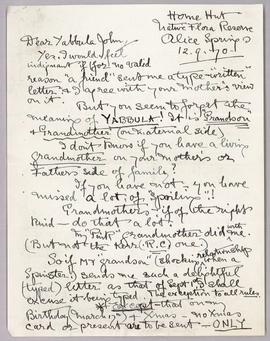 Home Hut
Native Flora Reserve
Alice Springs
12.9.70
Dear Yabbula John,
Yes, I would feel
indignant if (for no valid
reason "a friend" sent me a type-"written"
letter & I agree with your mother's view
on it.
But you seem to forget the
meaning of YABBULA! It is Grandson
& Grandmother (on maternal side)
I don't know if you have a living
Grandmother on your mother's or
Father's side of family?
If you have not – you have
"missed a lot of spoiling"!
Grandmothers – if of the right
kind – do that a lot.
"Pat" Grandmother did with me
(But not the Kerr (R.C) one)
So if my "grandson" (shocking relationship to a
Spinster) sends me such a delightful
(typed) letter as that of Sept 1st I shall
excuse it being typed. The exception to all rules
is – that on my
Birthday (March) & Xmas – no Xmas
Card or present are to be sent – ONLY